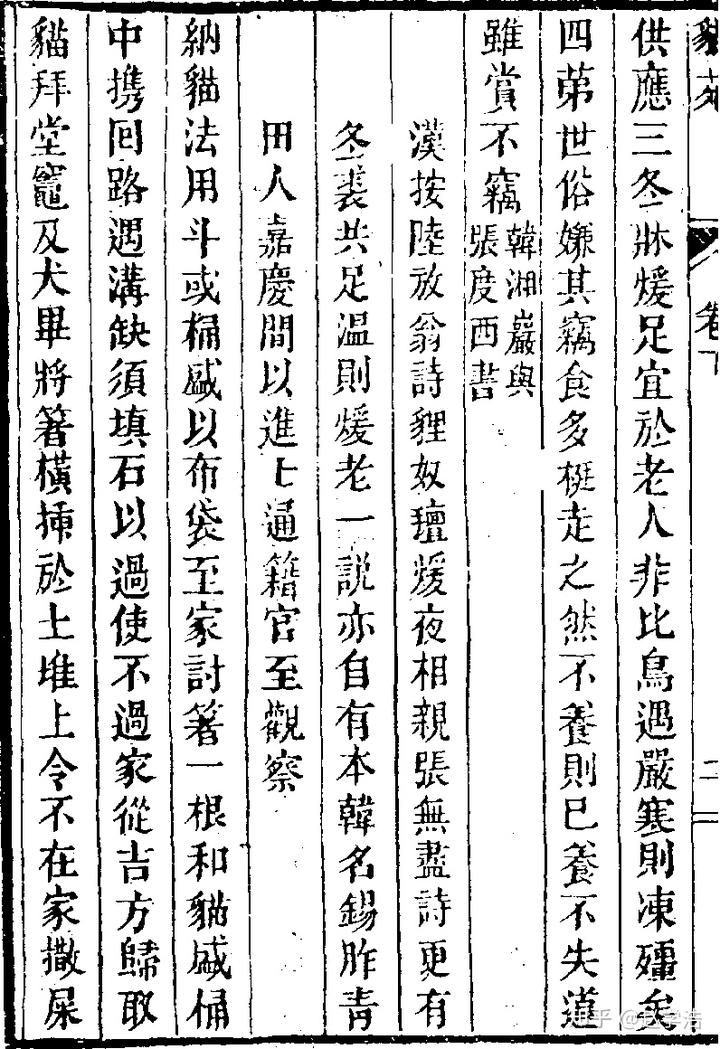 卷下
供應三冬牀煖足宜於老人非比鳥遇嚴寒則凍殭矣
四苐世俗嫌其竊食多梃走之然不養則已養不失道
雖賞不竊韓湘巖與
張度西書
漢按陸放翁詩貍奴氊煖夜相親張無盡詩更有
冬裘共足温則煖老一說亦自有本韓名錫胙青
田人嘉慶間以進士通籍官至觀察
納貓法用斗或桶盛以布袋至家討箸一根和貓盛桶
中携回路遇溝缺須填石以過使不過家從吉方歸取
貓拜堂竈及犬畢將箸橫插於土堆上令不在家撒屎